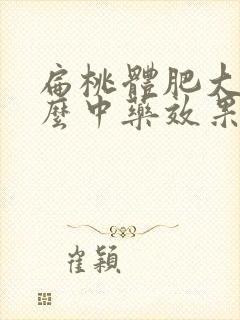 扁桃體肥大
麼中藥效果
崔穎